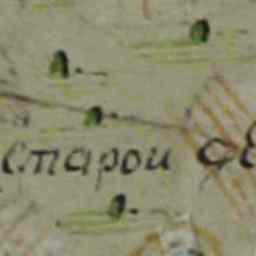 старои се